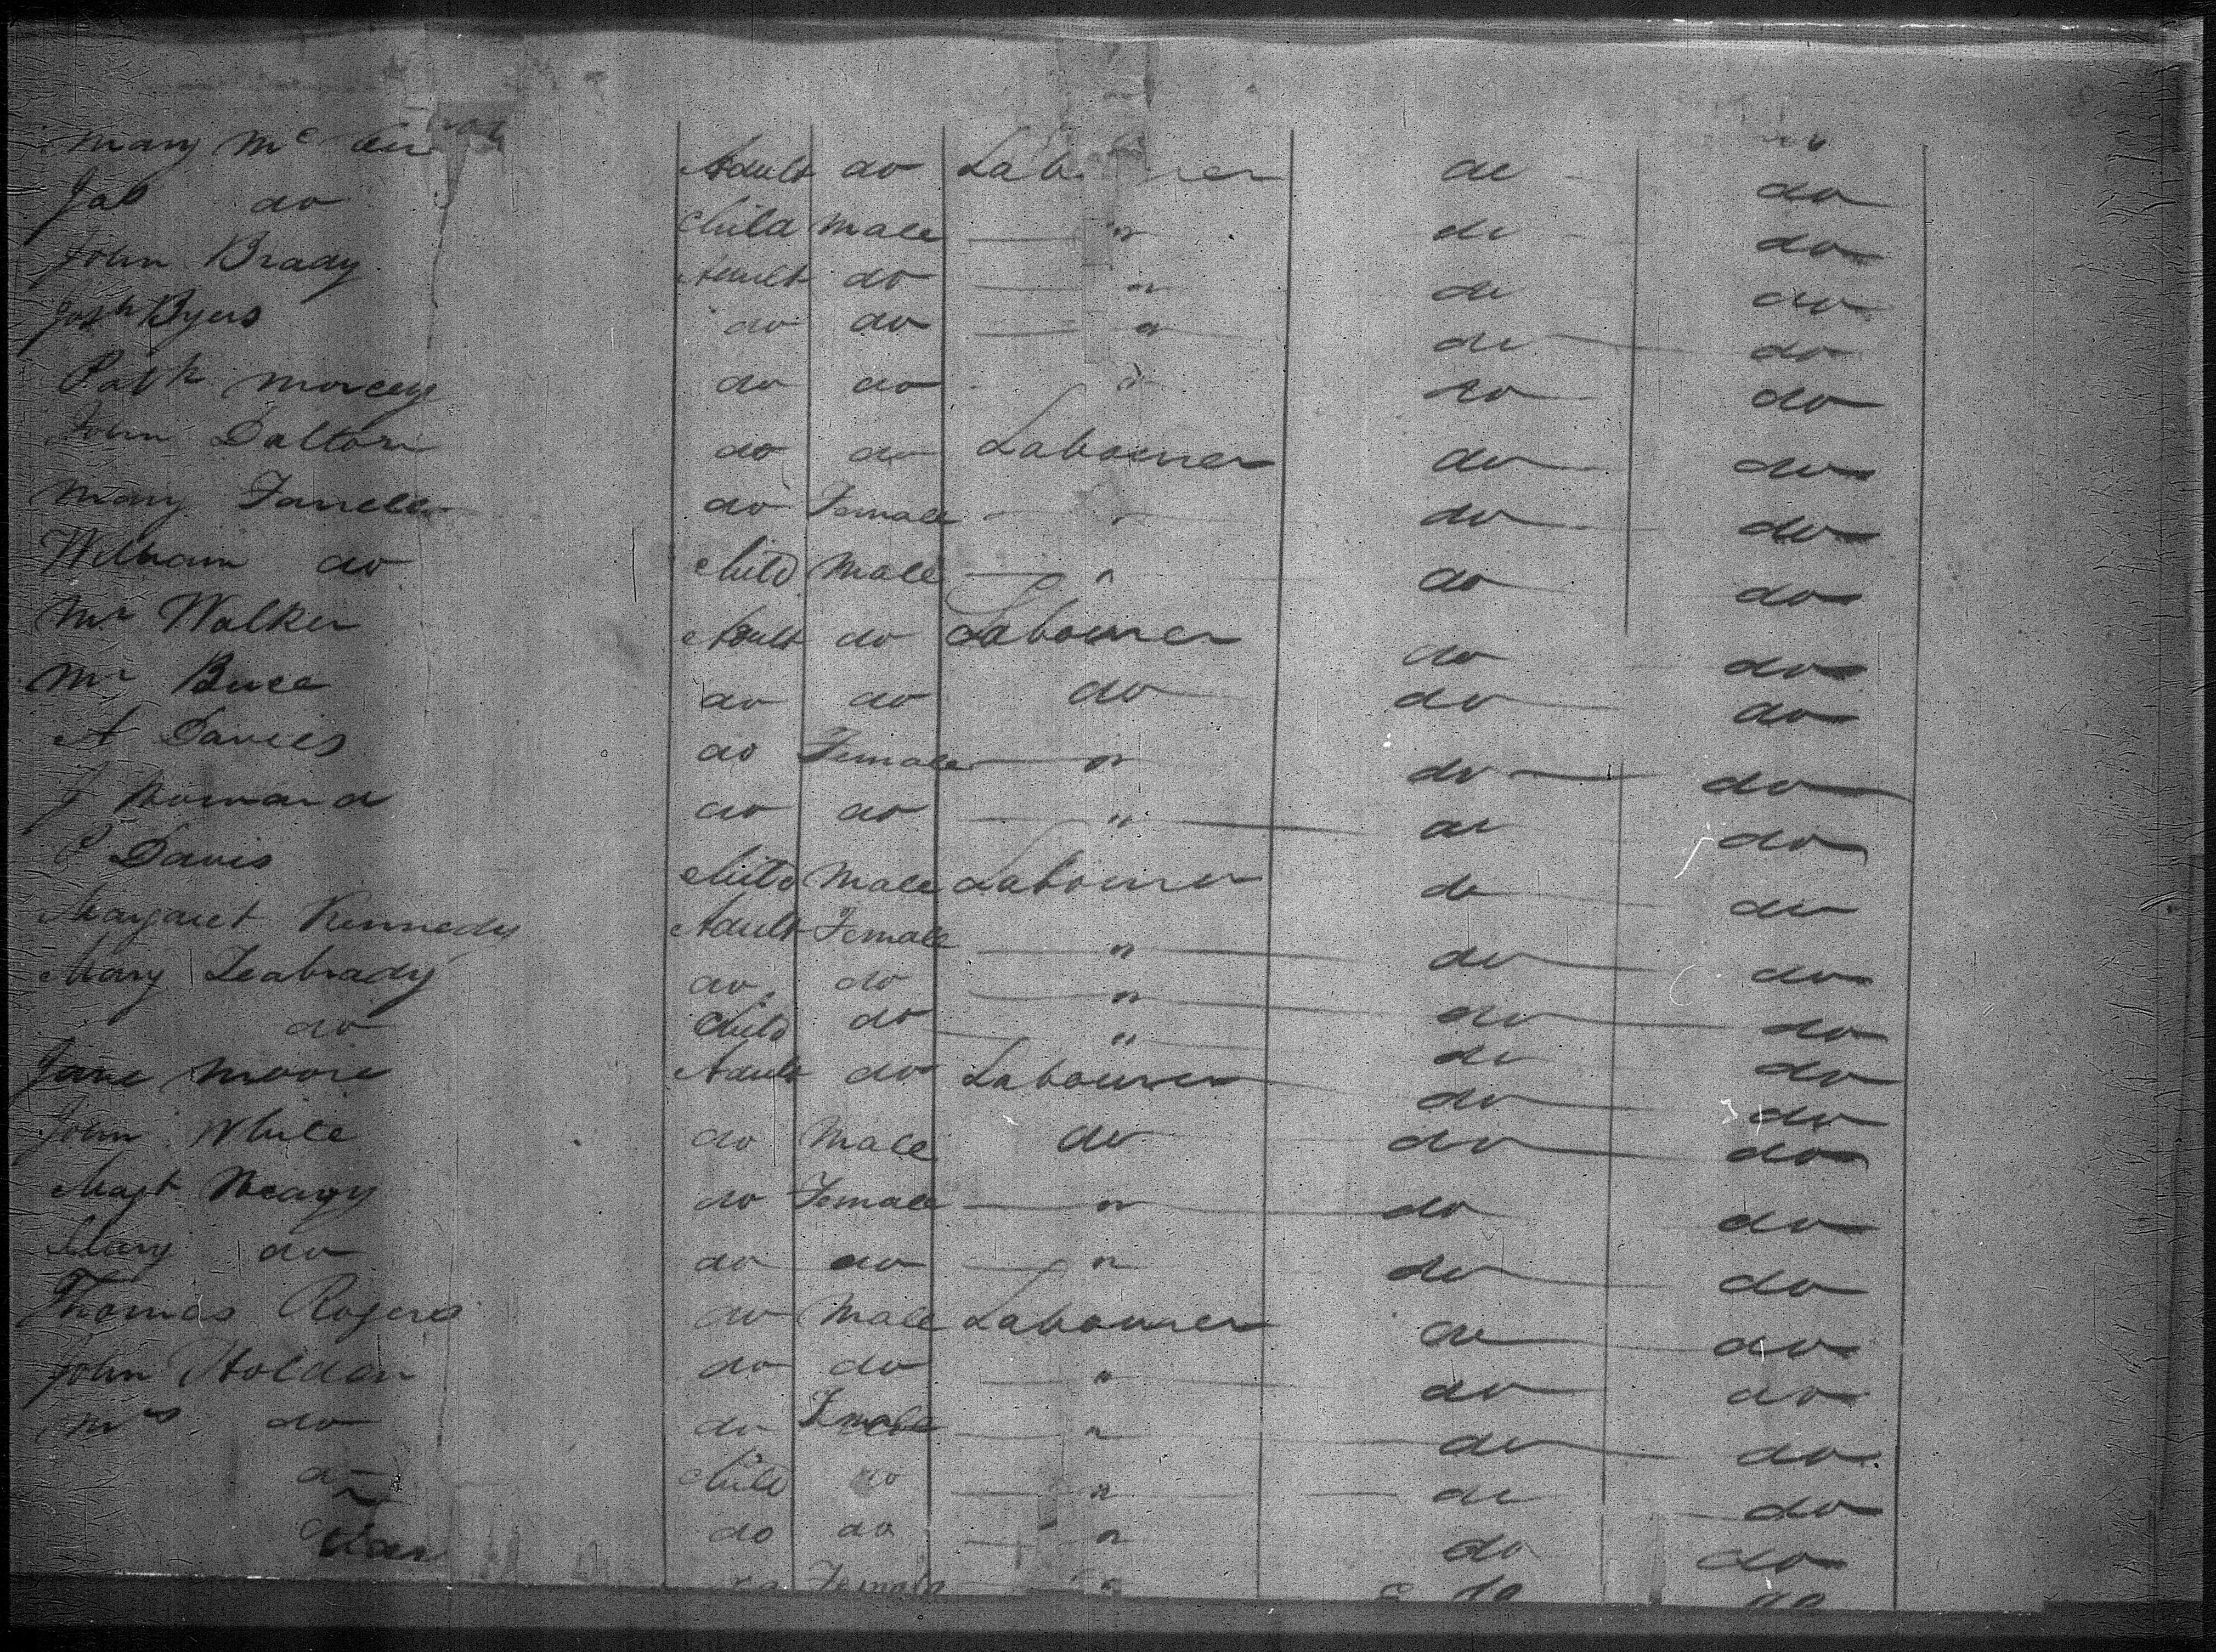 Mary Mc
Adult do Labourer do do
Jas do Child Male " do do
John Brady Adult do " do do
Josh Byers do do " do do
Patk do do " do do
John Dalton do do Labourer do do
Mary Farrell do Female " do do
William do Child Male " do do
Mr Walker Adult do Labourer do do
Mr do do do do do
A Davies do Female " do do
J do do " do do
Davis Child Male Labourer do do
Margaret Kennedy Adult Female " do do
Mary do do " do do
do Child do " do do
Jane Moore Adult do Labourer do do
John White do Male do do do
Magt do Female " do do
Mary do do do " do do
Thomas Rogers do Male Labourer do do
John Holden do do " do do
Mrs do do Female " do do
Child do " do do
do do " do do
Female " do do